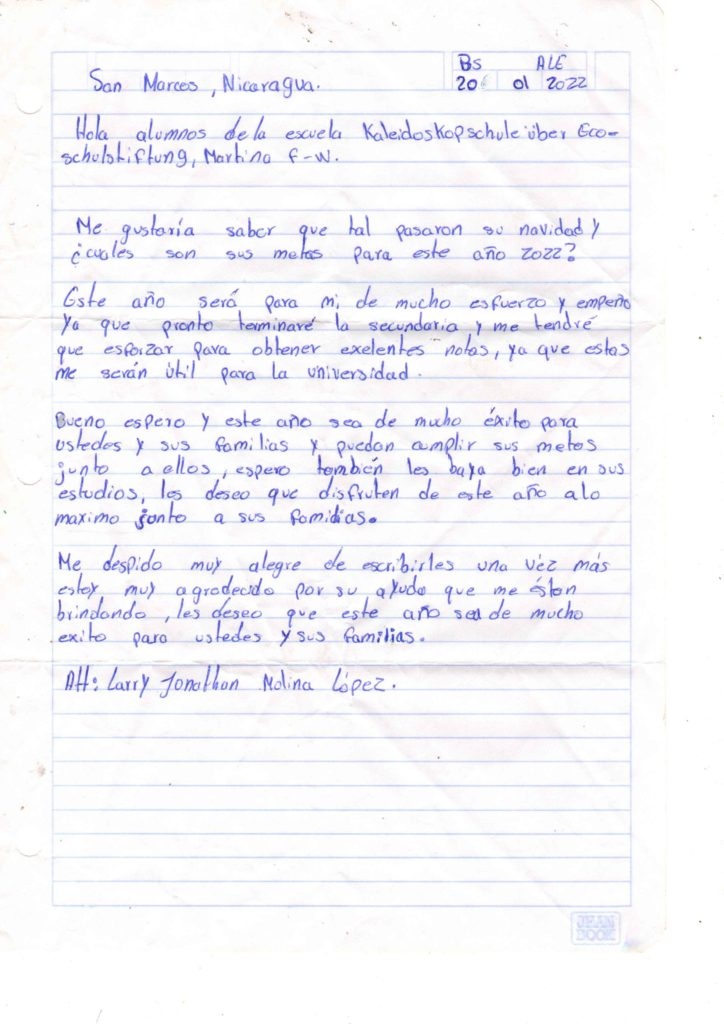 Bs ALE
San Marcos, Nicaragua. 20 01 2022
Hola alumnos de la escuela Kaleidoskopschule über Eco-
schulstiftung, Martina F-W.
Me gustaría saber que tal pasaron su navidad y
¿cuales son sus metas para este año 2022?
Este año será para mi de mucho esfuerzo y empeño
ya que pronto terminaré la secundaria y me tendré
que esforzar para obtener exelentes notas, ya que estas
me serán útil para la universidad.
Bueno espero y este año sea de mucho éxito para
ustedes y sus familias y puedan cumplir sus metas
junto a ellos, espero también les baya bien en sus
estudios, les deseo que disfruten de este año alo
maximo junto a sus familias.
Me despido muy alegre de escribirles una vez más
estoy muy agradecido por su ayuda que me éstan
brindando, les deseo que este año sea de mucho
exito para ustedes y sus familias.
Att: Larry Jonathan Molina López.
JEAN
BOOK